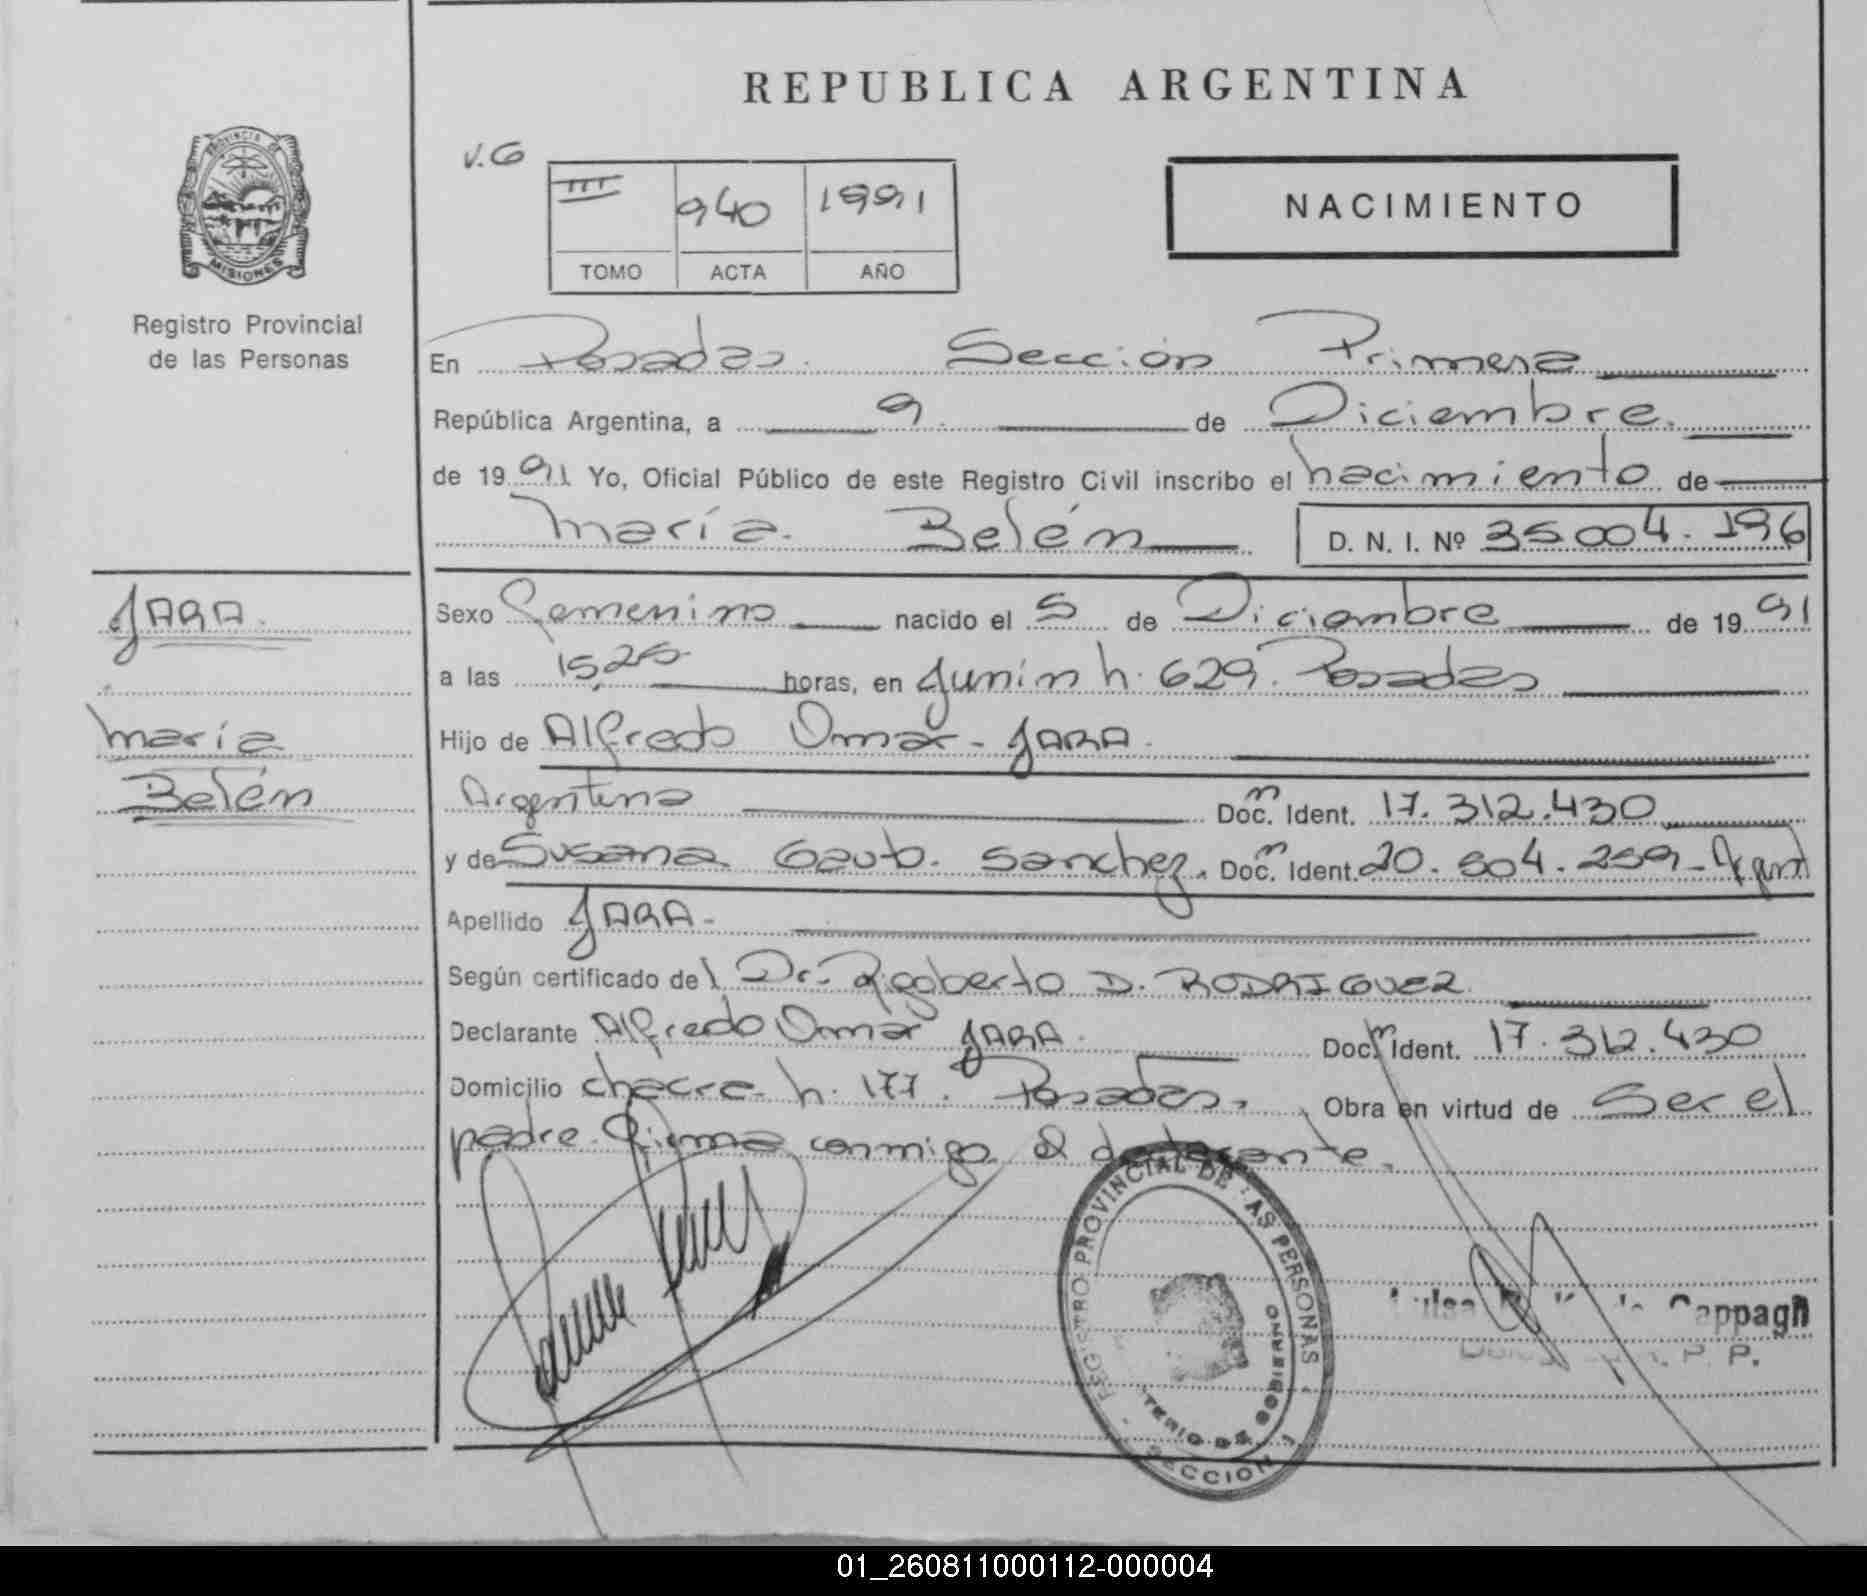 REPUBLICA ARGENTINA
PROVINCIA DE
MISIONES
Registro Provincial
de las Personas
V.G
III 940 1991
TOMO ACTA AÑO
NACIMIENTO
En Posadas. Sección Primera
República Argentina, a 9. de Diciembre.
de 1991 Yo, Oficial Público de este Registro Civil inscribo el nacimiento de
María. Belén D. N. I. Nº 35.004.196
JARA.
María
Belén
Sexo Femenino nacido el 5 de Diciembre de 1991
a las 15,25 horas, en Junín n. 629. Posadas
Hijo de Alfredo Omar - JARA.
Argentina Doc. Ident. 17.312.430
y de Susana Sanchez. Doc. Ident. 20.504.259-
Apellido JARA-
Según certificado del Dr. Rigoberto D. RODRIGUEZ
Declarante Alfredo Omar JARA. Doc. Ident. 17.312.430
Domicilio chacra n. 177. Posadas. Obra en virtud de Ser el
padre. Firma conmigo el declarante.
REGISTRO PROVINCIAL DE LAS PERSONAS
GOBIERNO
SECCION 1
P. P.
01_260811000112-000004